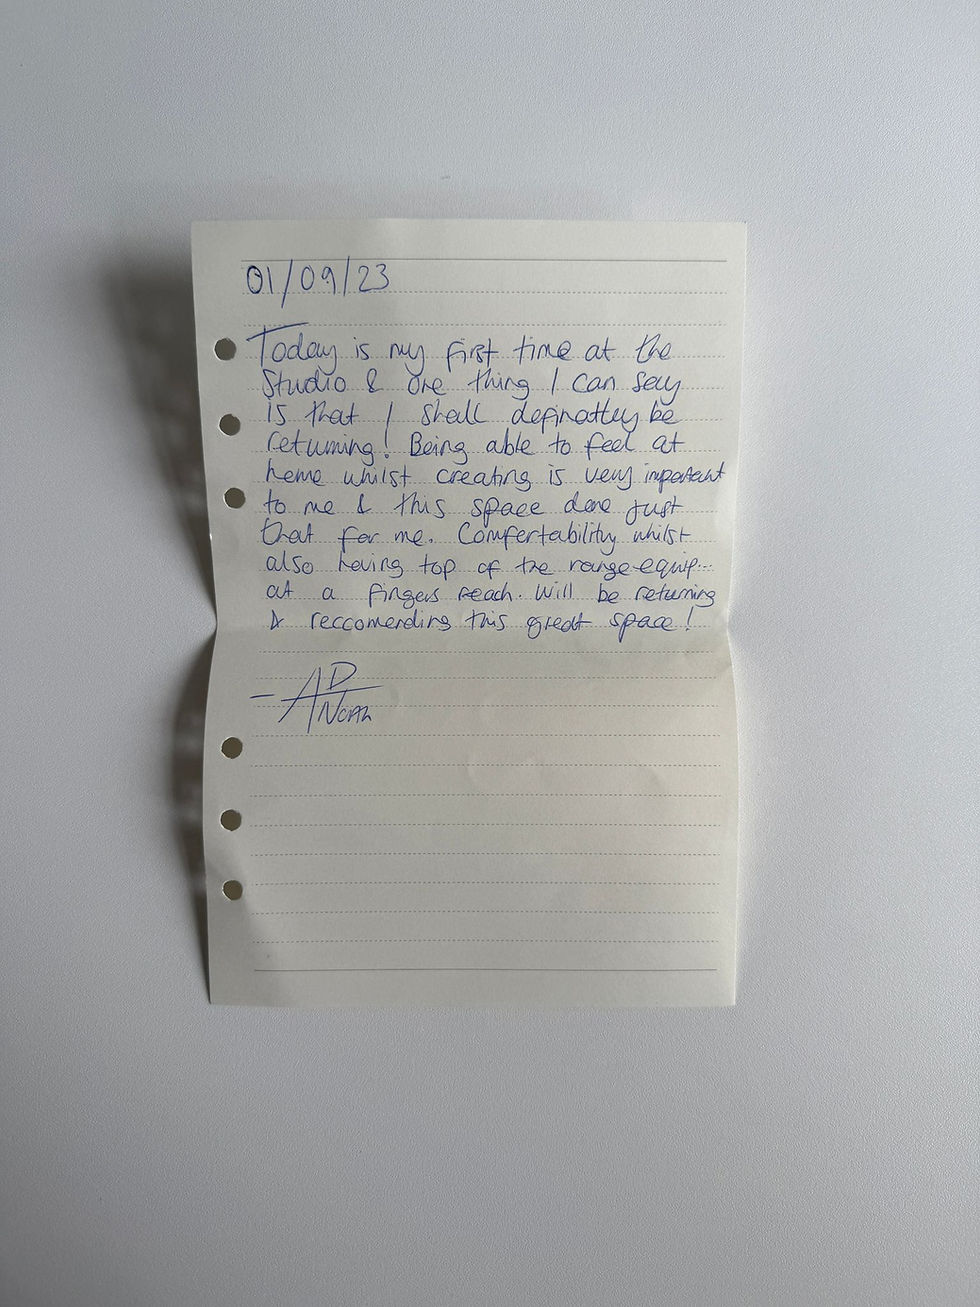 01/09/23
Today is my first time at the
Studio & one thing I can say
is that I shall definattey be
returning! Being able to feel at
home whilst creating is very important
to me & this space done just
that for me. Comfertability whilst
also having top of the range equip...
at a fingers reach. Will be returning
& reccomending this great space!
- AD